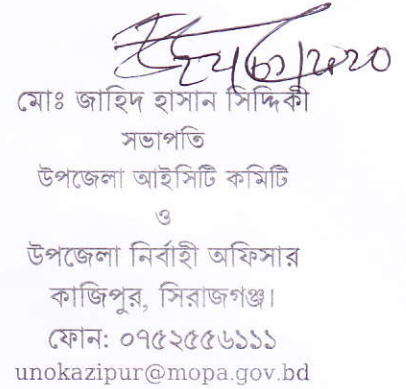 মোঃ জাহিদ হাসান সিদ্দিকী
সভাপতি
উপজেলা আইসিটি কমিটি
ও
উপজেলা নির্বাহী অফিসার
কাজিপুর, সিরাজগঞ্জ।
ফোন: ০৭৫২৫৫৬১১১
unokazipur@mopa.gov.bd